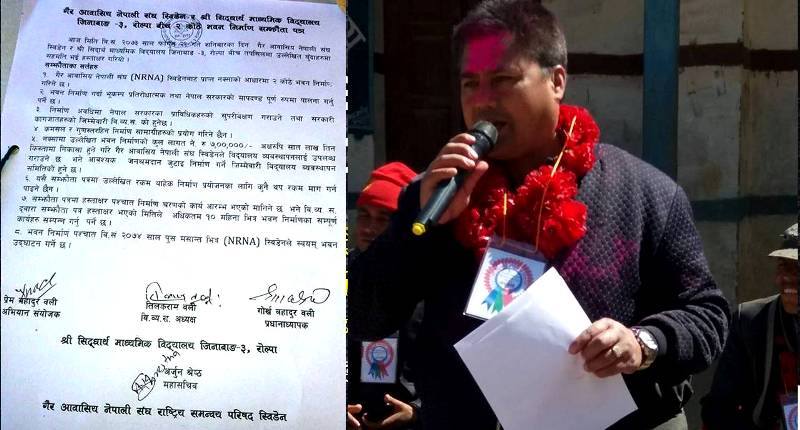 गैर आवासिय नेपाली संघ स्विडेन र श्री सिद्धार्थ माध्यमिक विद्यालय
जिनाबाङ -३, रोल्पा बीच २ कोठे भवन निर्माण सम्झौता पत्र
आज मिति बि.सं. २०७३ साल फागुन गते शनिबारका दिन गैर आवासिय नेपाली संघ
स्विडेन र श्री सिद्धार्थ माध्यमिक विद्यालय जिनाबाङ -३, रोल्पा बीच तपसिलमा उल्लेखित बुँदाहरुमा
सहमति भई हस्ताक्षर गरियो ।
सम्झौताका सर्तहरु
१. गैर आवासिय नेपाली संघ (NRNA) स्विडेनबाट प्राप्त नक्साको आधारमा २ कोठे भवन निर्माण
गरिने छ ।
२. भवन निर्माण गर्दा भूकम्प प्रतिरोधात्मक तथा नेपाल सरकारको मापदण्ड पूर्ण रुपमा पालना गर्नु
पर्ने छ ।
३. निर्माण अवधिमा नेपाल सरकारका प्राविधिकहरुको सुपरीवेक्षण गराउने तथा सरकारी
कागजातहरुको जिम्मेवारी बि.व्य.स. को हुनेछ ।
४. कमसल र गुणस्तरहिन निर्माण सामाग्रीहरुको प्रयोग गरिने छैन ।
५. नक्सामा उल्लेखित भवन निर्माणको कुल लागत ने. रु ७,००,०००/- अक्षरुपि सात लाख तिन
किस्तामा निकासा हुने गरि गैर आवासिय नेपाली संघ स्विडेनले विद्यालय व्यवस्थापनलाई उपलब्ध
गराउने छ भने आवश्यक जनश्रमदान जुटाई निर्माण गर्ने जिम्मेवारी विद्यालय व्यवस्थापन
समितिको हुने छ ।
६. यसै सम्झौता पत्रमा उल्लेखित रकम बाहेक निर्माण प्रयोजनका लागि कुनै थप रकम माग गर्न
पाइने छैन ।
७. सम्झौता पत्रमा हस्ताक्षर पश्चात निर्माण चरणको कार्य आरम्भ भएको मानिने छ, भने बि.व्य. स.
द्वारा सम्झौता पत्र हस्ताक्षर भएको मितिले अधिकतम १० महिना भित्र भवन निर्माणका सम्पूर्ण
कार्यहरु सम्पन्न गर्नु पर्ने छ ।
८. भवन निर्माण पश्चात बि.सं २०७४ साल पुस मसान्त भित्र (NRNA) स्विडेनले स्वयम् भवन
उद्घाटन गर्ने छ ।
प्रेम बहादुर वली तिलकराम वली गोर्ख बहादुर वली
अभियान संयोजक बि.व्य.स. अध्यक्ष प्रधानाध्यापक
श्री सिद्धार्थ माध्यमिक विद्यालय जिनाबाङ-३, रोल्पा
अर्जुन श्रेष्ठ
महासचिव
गैर आवासिय नेपाली संघ राष्ट्रिय समन्वय परिषद स्विडेन